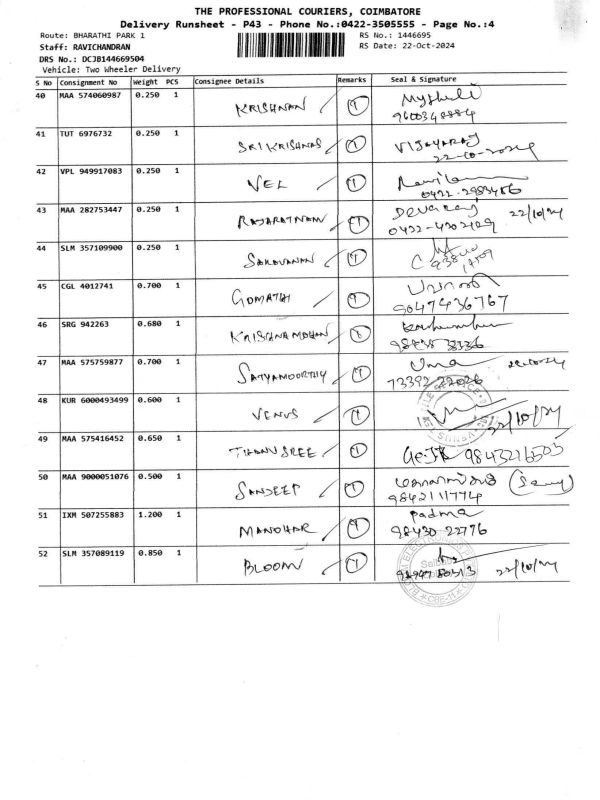 THE PROFESSIONAL COURIERS, COIMBATORE
Delivery Runsheet - P43 - Phone No.:0422-3505555 - Page No.:4
Route: BHARATHI PARK 1 RS No.: 1446695
Staff: RAVICHANDRAN RS Date: 22-Oct-2024
DRS No.: DCJB144669504
Vehicle: Two Wheeler Delivery
S No Consignment No Weight PCS Consignee Details Remarks Seal & Signature
40 MAA 574060987 0.250 1 KRISHNAN
41 TUT 6976732 0.250 1 SRIKRISHNAS VIJAYARAJ
22-10-2024
42 VPL 949917083 0.250 1 VEL
0422-2983486
43 MAA 282753447 0.250 1 RAJARATNAM Devaraj 22/10/24
0422-4302109
44 SLM 357109900 0.250 1 SARAVANAN
45 CGL 4012741 0.700 1 GOMATHI
9047436767
46 SRG 942263 0.680 1 KRISHNAMOHAN
47 MAA 575759877 0.700 1 SATYAMOORTHY Uma 22-10-24
73392 22026
48 KUR 6000493499 0.600 1 VENUS 22/10/24
49 MAA 575416452 0.650 1 THANUSREE 9843216505
50 MAA 9000051076 0.500 1 SANDEEP
9842111774
51 IXM 507255883 1.200 1 MANOHAR Padma
98430 22776
52 SLM 357089119 0.850 1 BLOOM 22/10/24